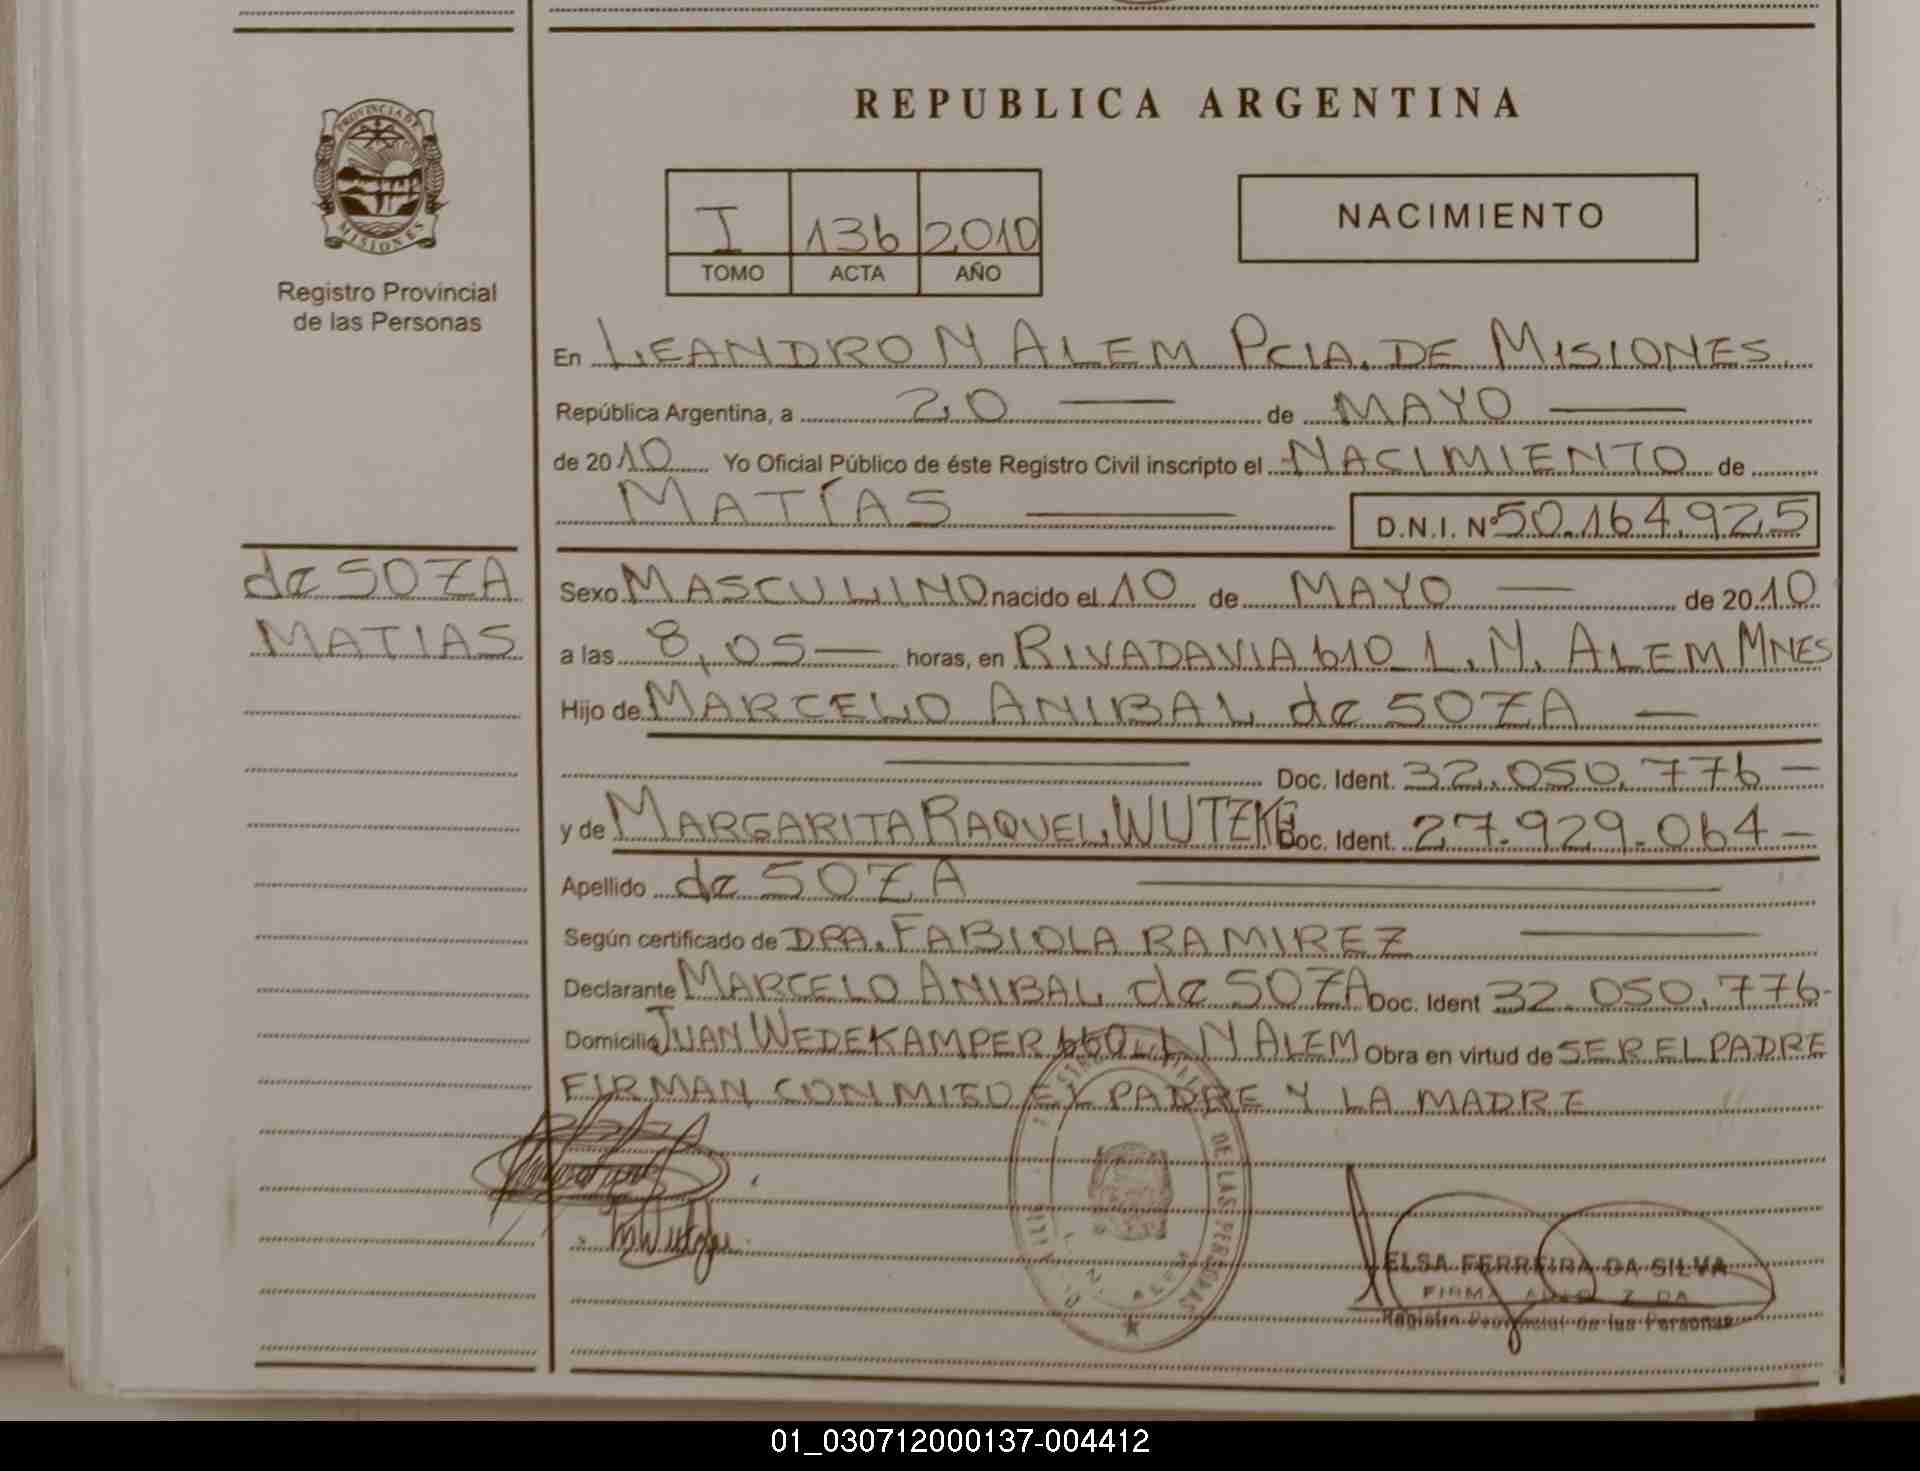 REPUBLICA ARGENTINA
PROVINCIA DE
MISIONES
Registro Provincial
de las Personas
I 136 2010
TOMO ACTA AÑO
NACIMIENTO
En LEANDRO N ALEM PCIA. DE MISIONES
República Argentina, a 20 — de MAYO —
de 2010 Yo Oficial Público de éste Registro Civil inscripto el NACIMIENTO de
MATÍAS — D.N.I. Nº 50.164.925
de SOZA
MATIAS
Sexo MASCULINO nacido el 10 de MAYO — de 2010
a las 8,05 — horas, en RIVADAVIA 610 L.N. ALEM MNES
Hijo de MARCELO ANIBAL de SOZA —
— Doc. Ident. 32.050.776 —
y de MARGARITA RAQUEL WUTZKE Doc. Ident. 27.929.064 —
Apellido de SOZA —
Según certificado de DRA. FABIOLA RAMIREZ —
Declarante MARCELO ANIBAL de SOZA Doc. Ident 32.050.776-
Domicilio JUAN WEDEKAMPER 660 L N ALEM Obra en virtud de SER EL PADRE
FIRMAN CONMIGO EL PADRE Y LA MADRE
DE LAS PERSONAS
L. N. ALEM
ELSA FERREIRA DA SILVA
FIRMA AUTORIZADA
Registro Provincial de las Personas
01_030712000137-004412